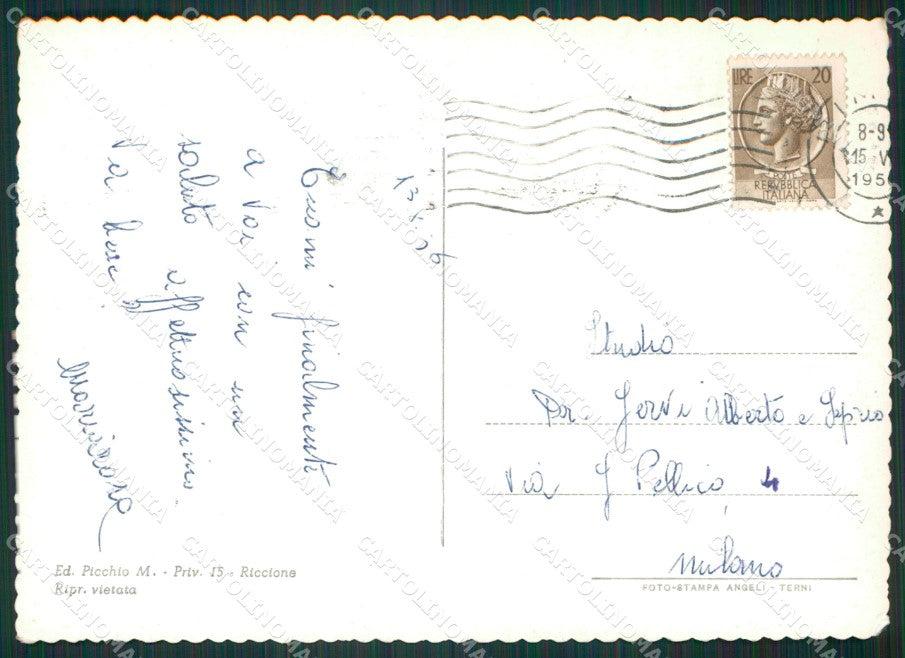 13
Eccomi finalmente
a Voi con un
saluto affettuosissimo.
Via
LIRE 20
POSTE
REPUBBLICA
ITALIANA
8-9
15 V
195
Studio
Jervi Alberto e
Via S Pellico 4
Milano
Ed. Picchio M. - Priv. 15 - Riccione
Ripr. vietata
FOTO-STAMPA ANGELI - TERNI
CARTOLINOMANIA